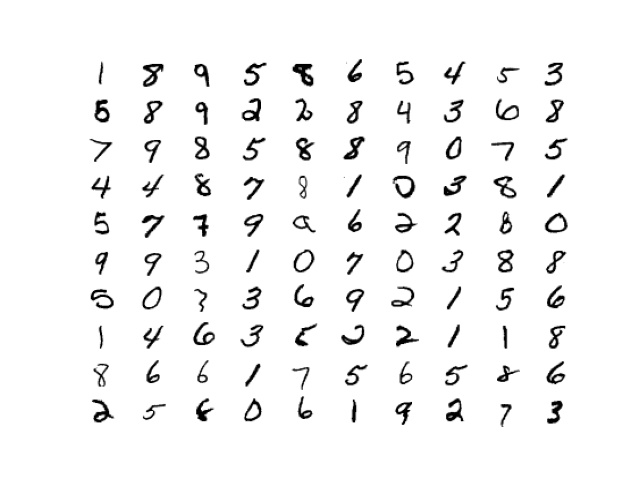 1 8 9 5 8 6 5 4 5 3
5 8 9 2 2 8 4 3 6 8
7 9 8 5 8 8 9 0 7 5
4 4 8 7 8 1 0 3 8 1
5 7 7 9 9 6 2 2 8 0
9 9 3 1 0 7 0 3 8 8
5 0 3 3 6 9 2 1 5 6
1 4 6 3 2 1 1 8
8 6 6 1 7 5 6 5 8 6
2 5 8 0 6 1 9 2 7 3